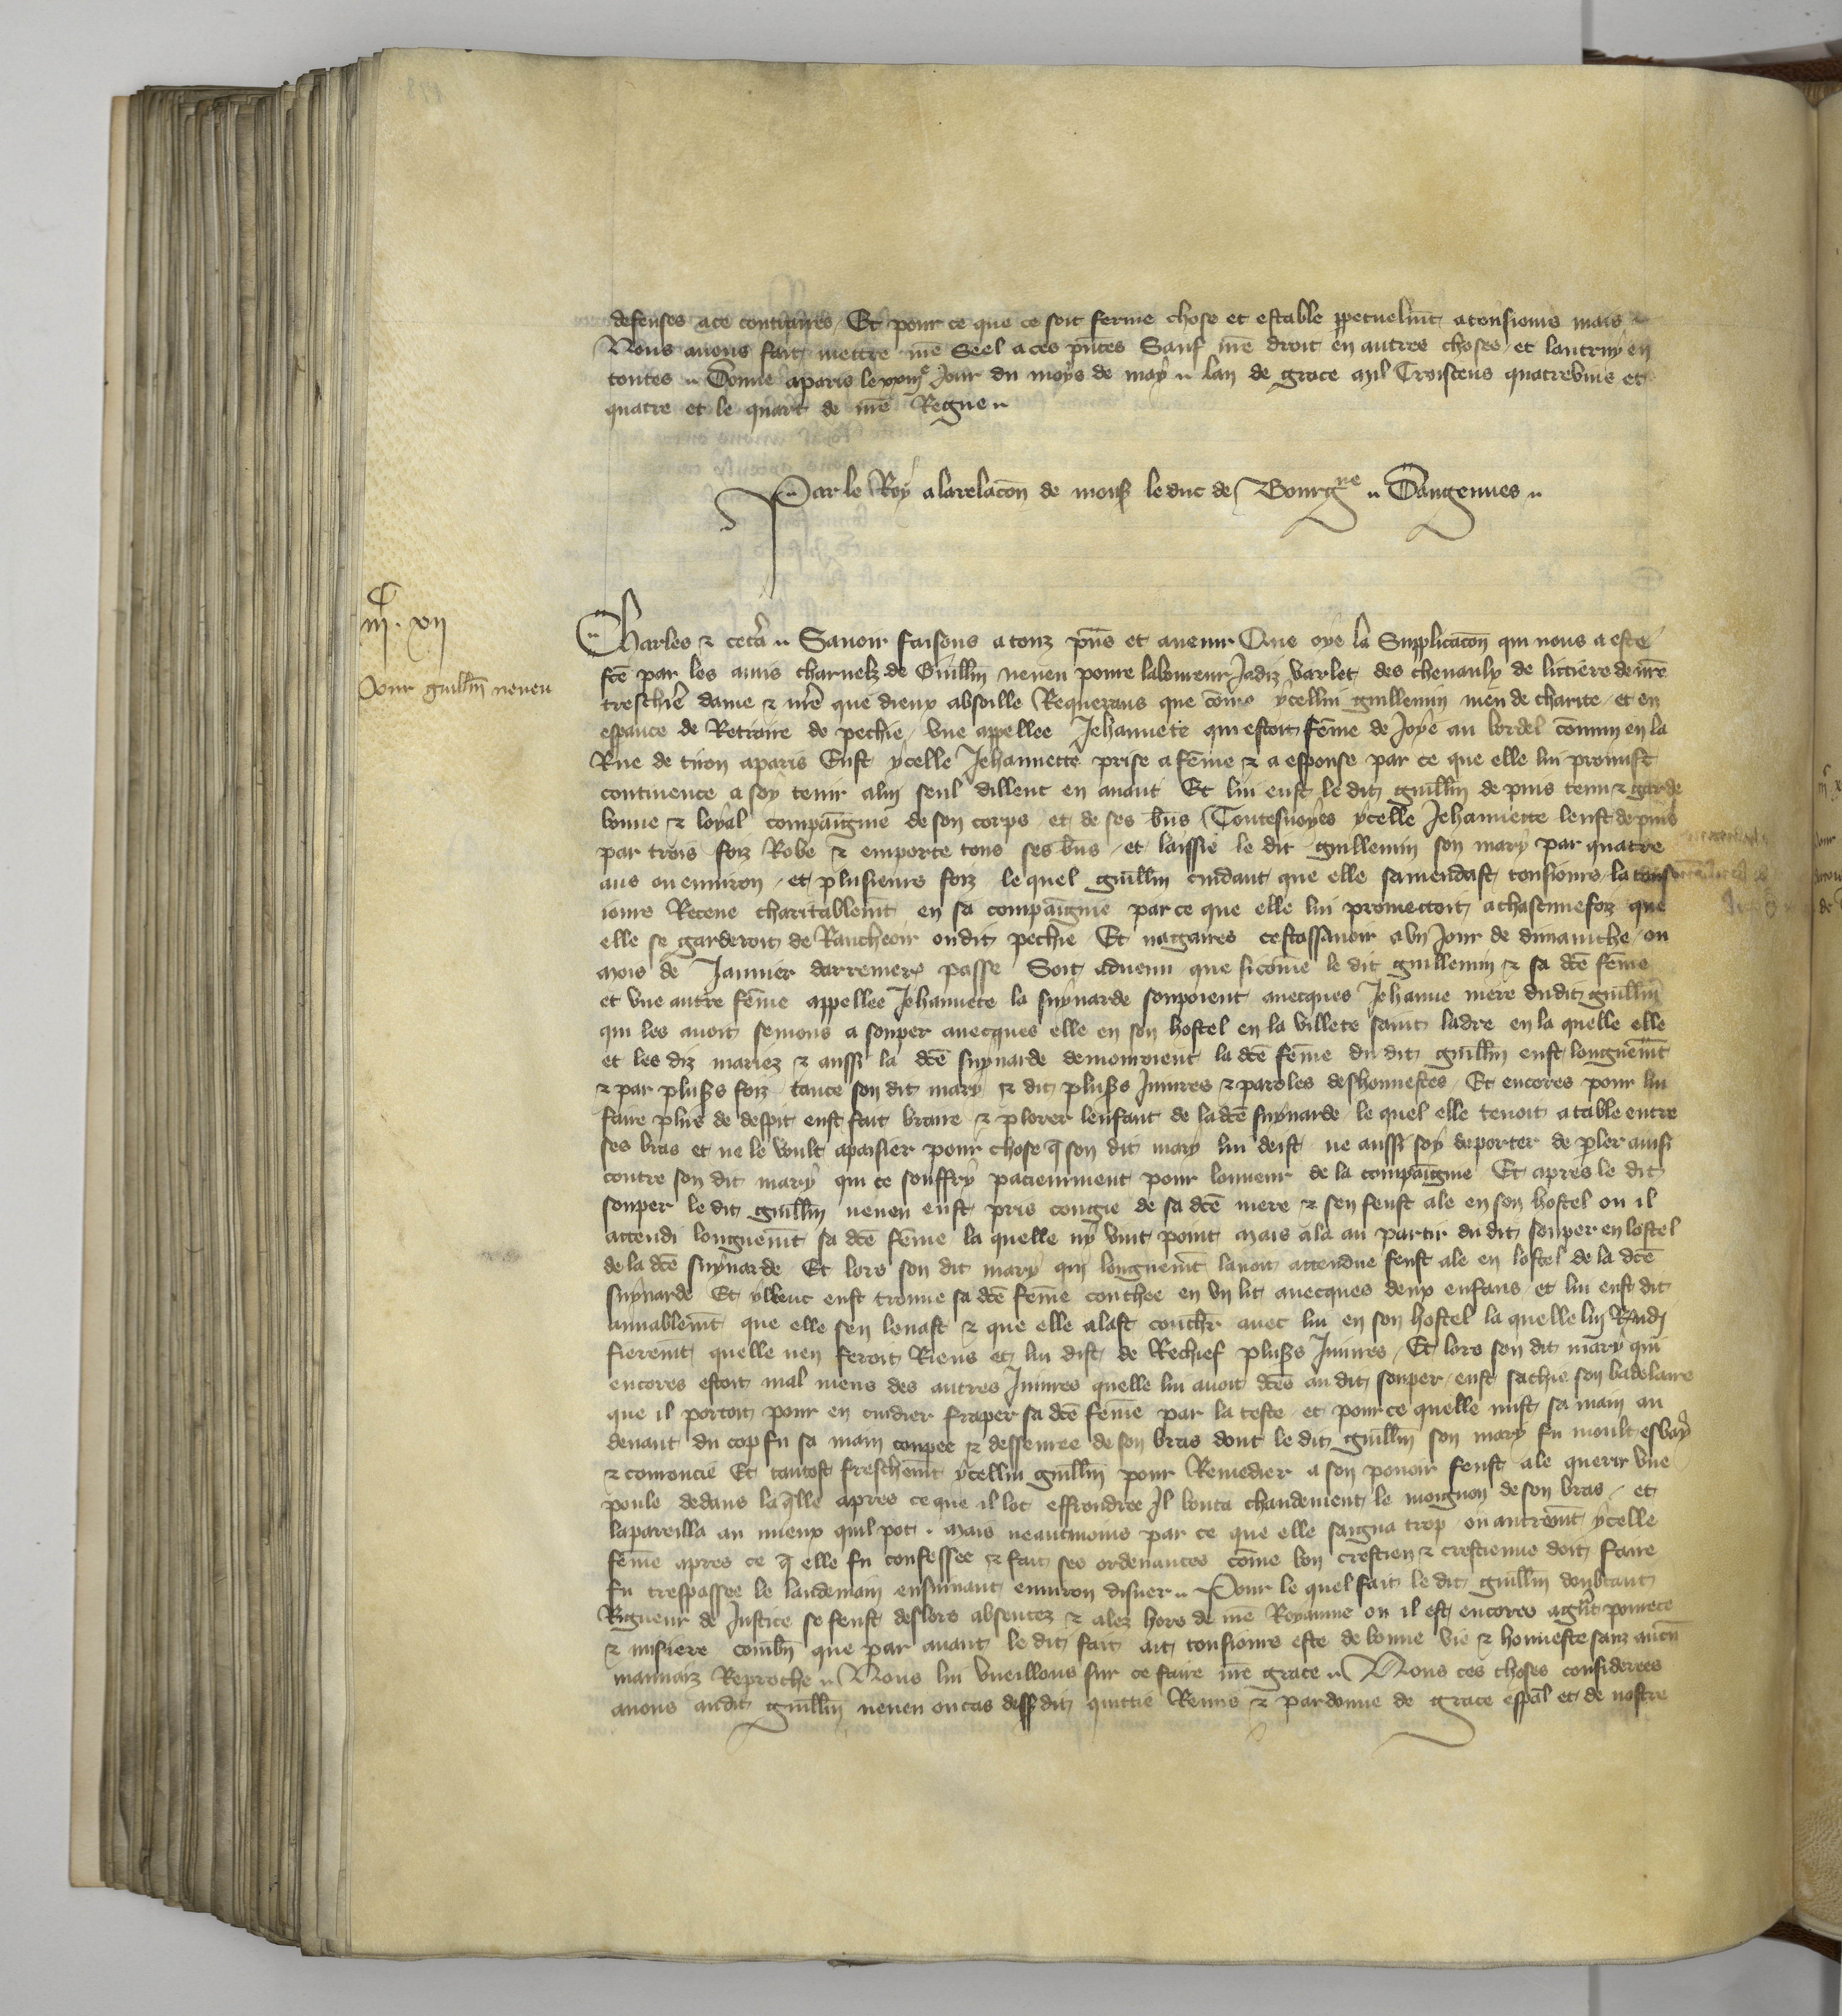 defenses a ce contraires Et pour ce que ce soit ferme chose et estable ppetuelmt a tousiours mais
Nous auons fait mettre nre Seel a ces pntes Sauf nre droit en autres choses et lautruy en
toutes Donne a paris le xxiiie Jour du moys de may lan de grace mil Troiscens quatrevins et
quatre et le quart de nre Regne
Par le Roy a la relacon de mons le duc de Bourgne Dangennes
iiic xii
Pour guillm neueu
Charles & cetera Sauoir faisons a touz pns et auenir Que oye la Supplicacon qui nous a este
fce par les amis charnelz de Guillm neueu poure laboureur Jadiz varlet des cheuaulx de littiere de nre
treschiere dame & mere que dieux absoille Requerans que come ycellui guillemin meu de charite et en
espance de Retraire de pechie vne appellee Jehannete qui estoit feme de Joye au bordel comun en la
Rue de tiron a paris Eust ycelle Jehannette prise a feme & a espouse par ce que elle lui promist
continence a soy tenir a lui seul dillenc en auant Et lui eust le dit guillm de puis tenu & garde
bonne & loyal compaignie de son corps et de ses biens Toutesuoyes ycelle Jehannette leust de puis
par trois foiz Robe & emporte tous ses bns et laissie le dit guillemin son mary par quatre
ans ou enuiron et plusieurs foiz le quel guillm cuidant que elle samendast tousiours la
iours Receue charitablemt en sa compaignie par ce que elle lui promettoit a chascune foiz que
elle se garderoit de Rancheoir ou dit pechie Et nagaires cestassauoir a vn Jour de dimanche ou
mois de Januier darrenier passe Soit aduenu que si come le dit guillemin & sa dce feme
et vne autre feme appellee Jehannete la suynarde soupoient auecques Jehanne mere dudit guillm
qui les auoit semons a souper auecques elle en son hostel en la villete saint ladre en la quelle elle
et les diz mariez & aussi la dce suynarde demouroient la dce feme du dit guillm eust longuemt
& par plus foiz tance son dit mary & dit plus Iniures & paroles deshonnestes Et encores pour lui
faire plus de despit eust fait braire & plorer lenfant de la dce suynarde le quel elle tenoit a table entre
ses bras et ne le voult apaisier pour chose q son dit mary lui deist ne aussi soy deporter de pler ainsi
contre son dit mary qui ce souffry paciemment pour lonneur de la compaignie Et apres le dit
souper le dit guillm neueu eust pris congie de sa dce mere & sen feust ale en son hostel ou il
attendi longuemt sa dce feme la quelle ny vint point mais ala au partir du dit souper en lostel
de la dce suynarde Et lors son dit mary qui longuemt lauoit attendue feust ale en lostel de la dce
suynarde Et yllenc eust trouue sa dce feme couchee en vn lit auecques deux enfans et lui eust dit
amiablemt que elle sen leuast & que elle alast coucher auec lui en son hostel la quelle lui Rndi
fieremt quelle nen feroit Riens et lui dist de Rechief plus Iniures Et lors son dit mary qui
encores estoit mal meus des autres Iniures quelle lui auoit dces au dit souper eust sachie son badelaire
que il portoit pour en cuidier fraper sa dce feme par la teste et pour ce quelle mist sa main au
deuant du cop fu sa main coupee & desseuree de son bras dont le dit guillm son mary fu moult esbay
& corroucie Et tantost freschemt ycellui guillm pour Remedier a son pouoir feust ale querir vne
poule dedans la qlle apres ce que il lot effrondree Il bouta chaudement le moignon de son bras et
lapareilla au mieux quil pot mais neantmoins par ce que elle saigna trop ou autremt ycelle
feme apres ce q elle fu confessee & fait ses ordenances come bon crestien & crestienne doit faire
fu trespassee le landemain ensuiuant enuiron disner Pour le quel fait le dit guillm doubtant
Rigueur de Justice se feust deslors absentez & alez hors de nre Royaume ou il est encores a gnt pourete
& misiere combn que par auant le dit fait ait tousiours este de bonne vie & honneste sanz aucun
mauuaiz Reproche Nous lui vueillons sur ce faire nre grace Nous ces choses considerees
auons audit guillm neueu ou cas dessdit quittie Remis & pardonne de grace espal et de nostre